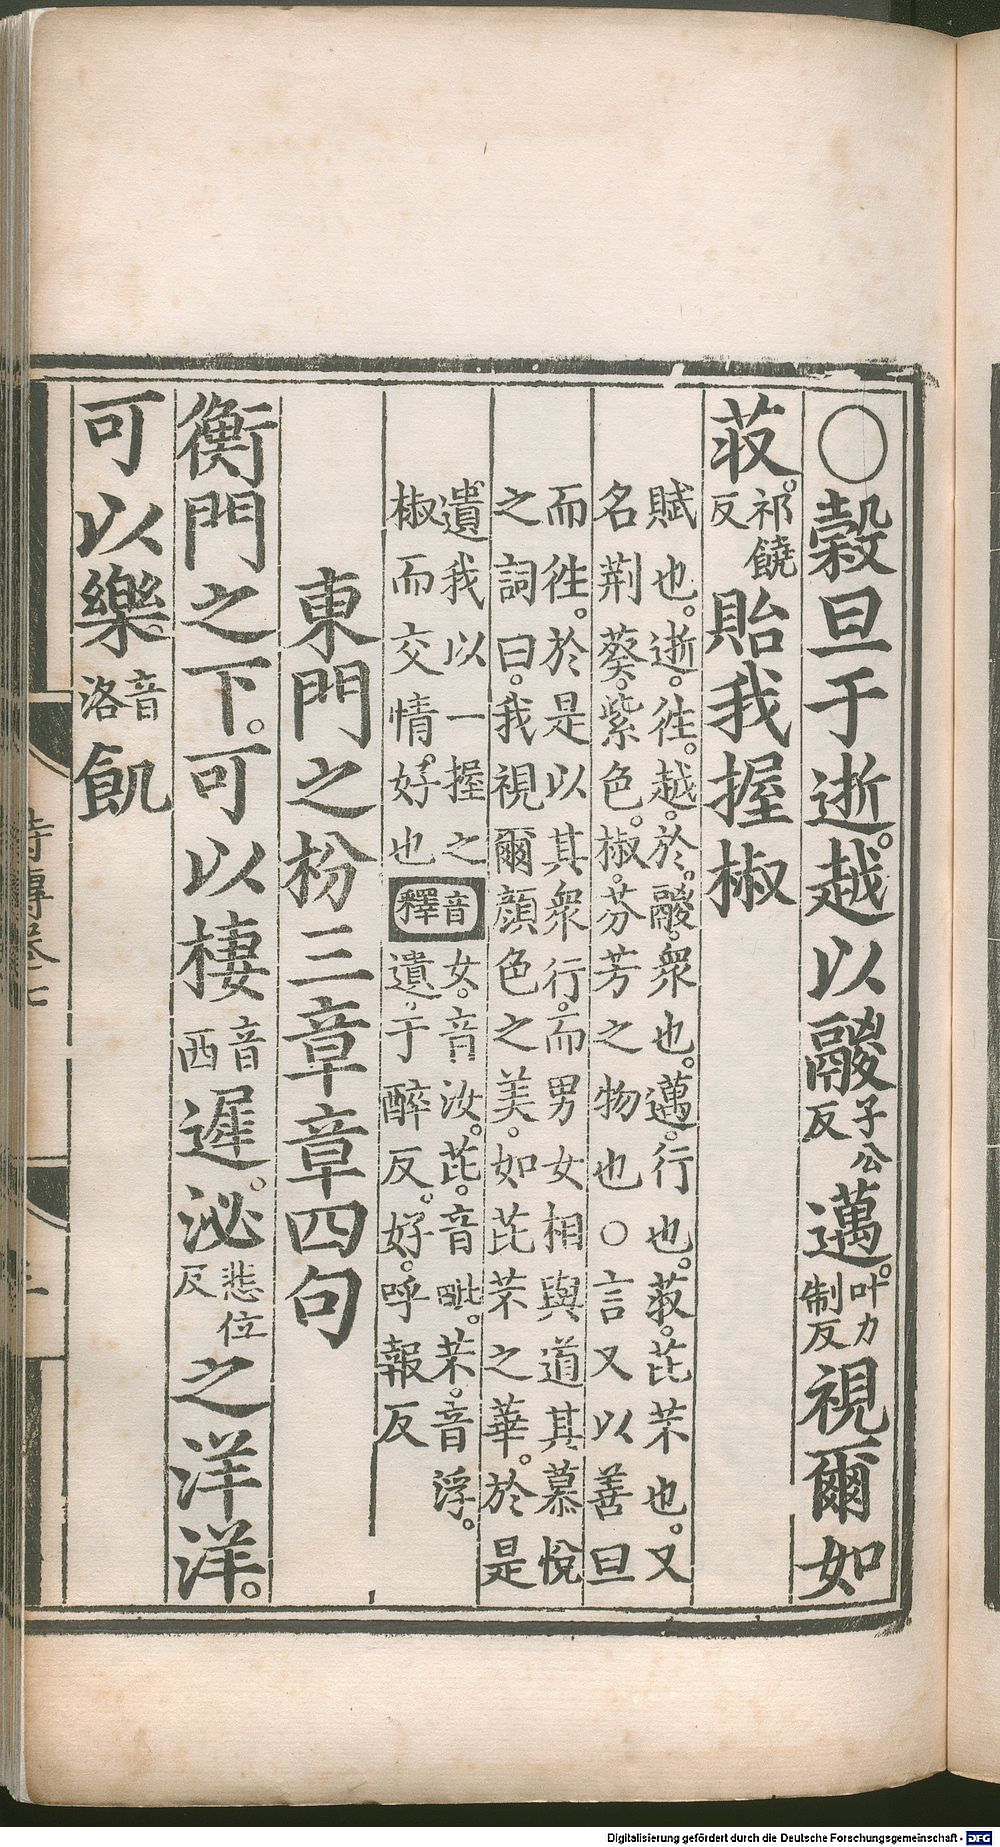 ○穀旦于逝。越以鬷子公反邁。叶力制反視爾如
荍。祁饒反貽我握椒
賦也。逝。往。越。於。鬷。衆也。邁。行也。荍。芘芣也。又
名荆葵。紫色。椒。芬芳之物也○言又以善旦
而徃。於是以其衆行。而男女相與道其慕悅
之詞曰。我視爾顔色之美。如芘芣之華。於是
遺我以一握之
椒而交情。好也
音釋
女。音汝。芘。音毗。芣。音浮。
遺。于醉反。好。呼報反
東門之枌三章章四句
衡門之下。可以棲音西遲。泌悲位反之洋洋。
可以樂。音洛飢
詩傳卷七
Digitalisierung gefördert durch die Deutsche Forschungsgemeinschaft - DFG